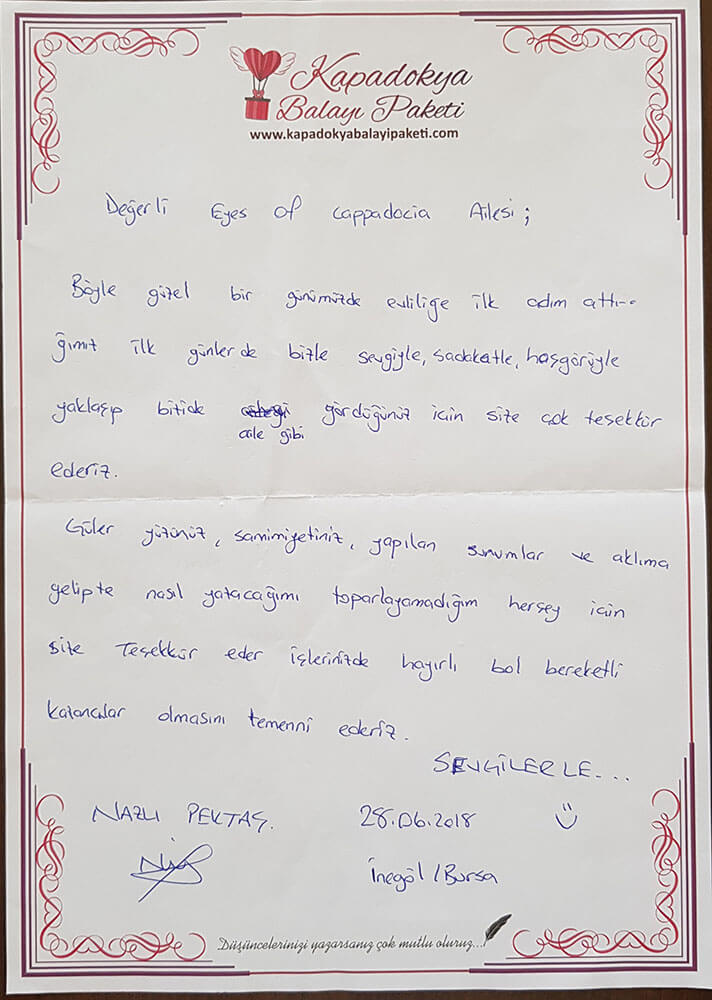 Kapadokya
Balayı Paketi
www.kapadokyabalayipaketi.com
Değerli Eyes of Cappadocia Ailesi;
Böyle güzel bir günümüzde evliliğe ilk adım attı-
ğımız ilk günlerde bizle sevgiyle, sadakatle, hoşgörüyle
yaklaşıp bizide gördüğünüz için size çok teşekkür
aile gibi
ederiz.
Güler yüzünüz, samimiyetiniz, yapılan sunumlar ve aklıma
gelipte nasıl yazacağımı toparlayamadığım herşey için
size Teşekkür eder işlerinizde hayırlı bol bereketli
kazançlar olmasını temenni ederiz.
SEVGİLERLE...
NAZLI PEKTAŞ. 28.06.2018
İnegöl/Bursa
Düşüncelerinizi yazarsanız çok mutlu oluruz...